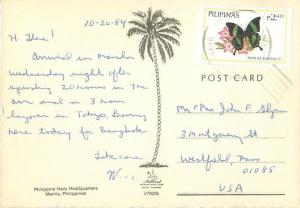 10-20-84
Hi There!
Arrived in Manila
Wednesday night after
spending 20 hours in the
air and a 3 hour
layover in Tokyo. Leaving
here today for Bangkok.
Take care,
Philippine Navy Headquarters
Manila, Philippines
V79206
PILIPINAS
POST CARD
Mr + Mrs John F.
3 Montgomery St
Westfield, Mass
01085
USA